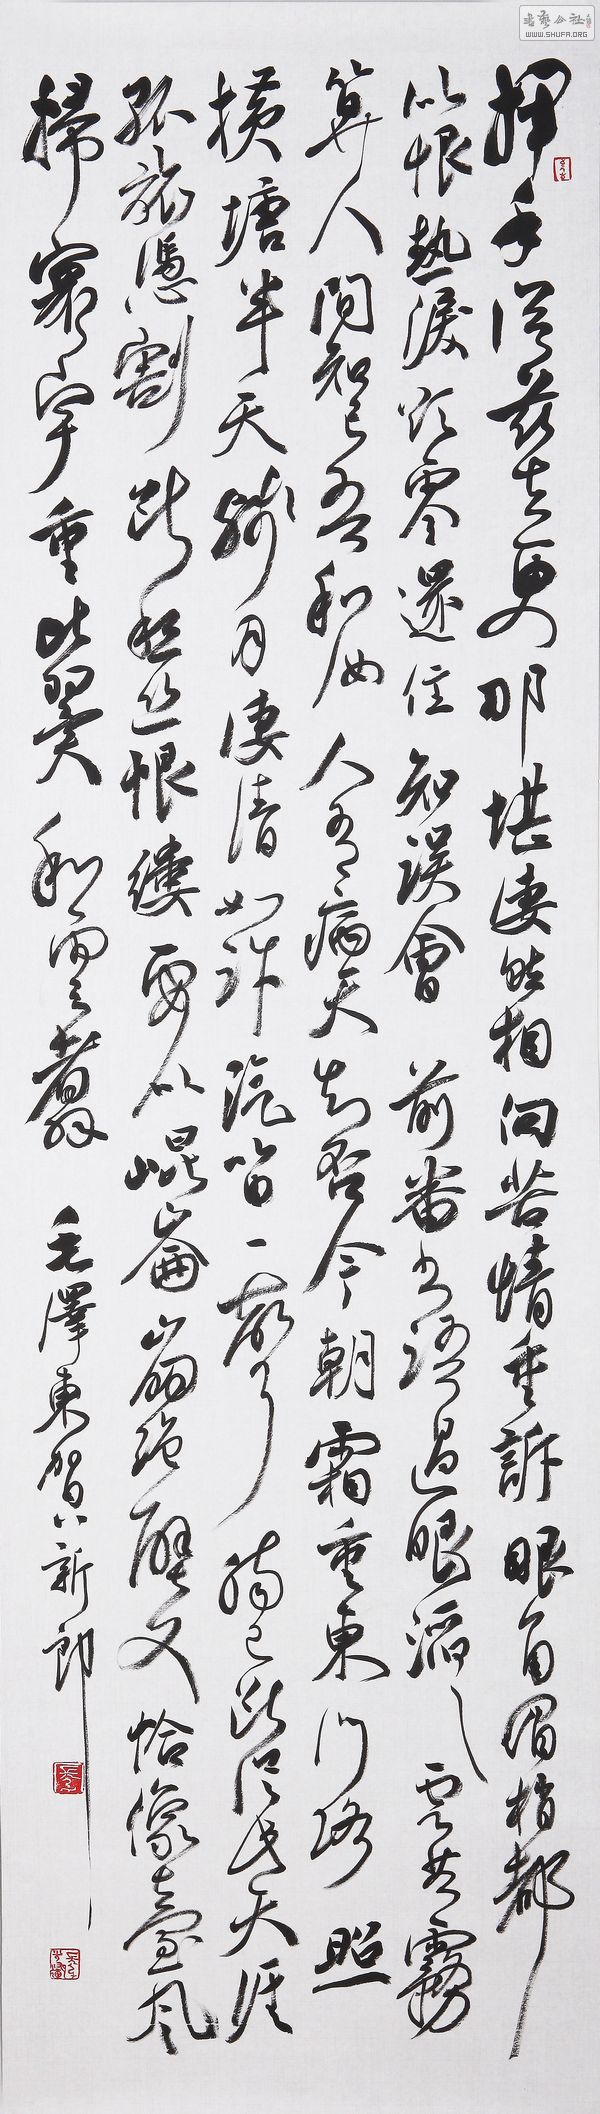 書藝公社
WWW.SHUFA.ORG
揮手從茲去更那堪淒然相向苦情重訴眼角眉梢都
似恨熱淚欲零還住知誤會前番書語過眼滔滔雲共霧
算人間知己吾和汝人有病天知否今朝霜重東門路照
橫塘半天殘月淒清如許汽笛一聲腸已斷從此天涯
孤旅憑割斷愁絲恨縷要似崐崙崩絕壁又恰像臺風
掃寰宇重比翼和雲翥 毛澤東賀新郎